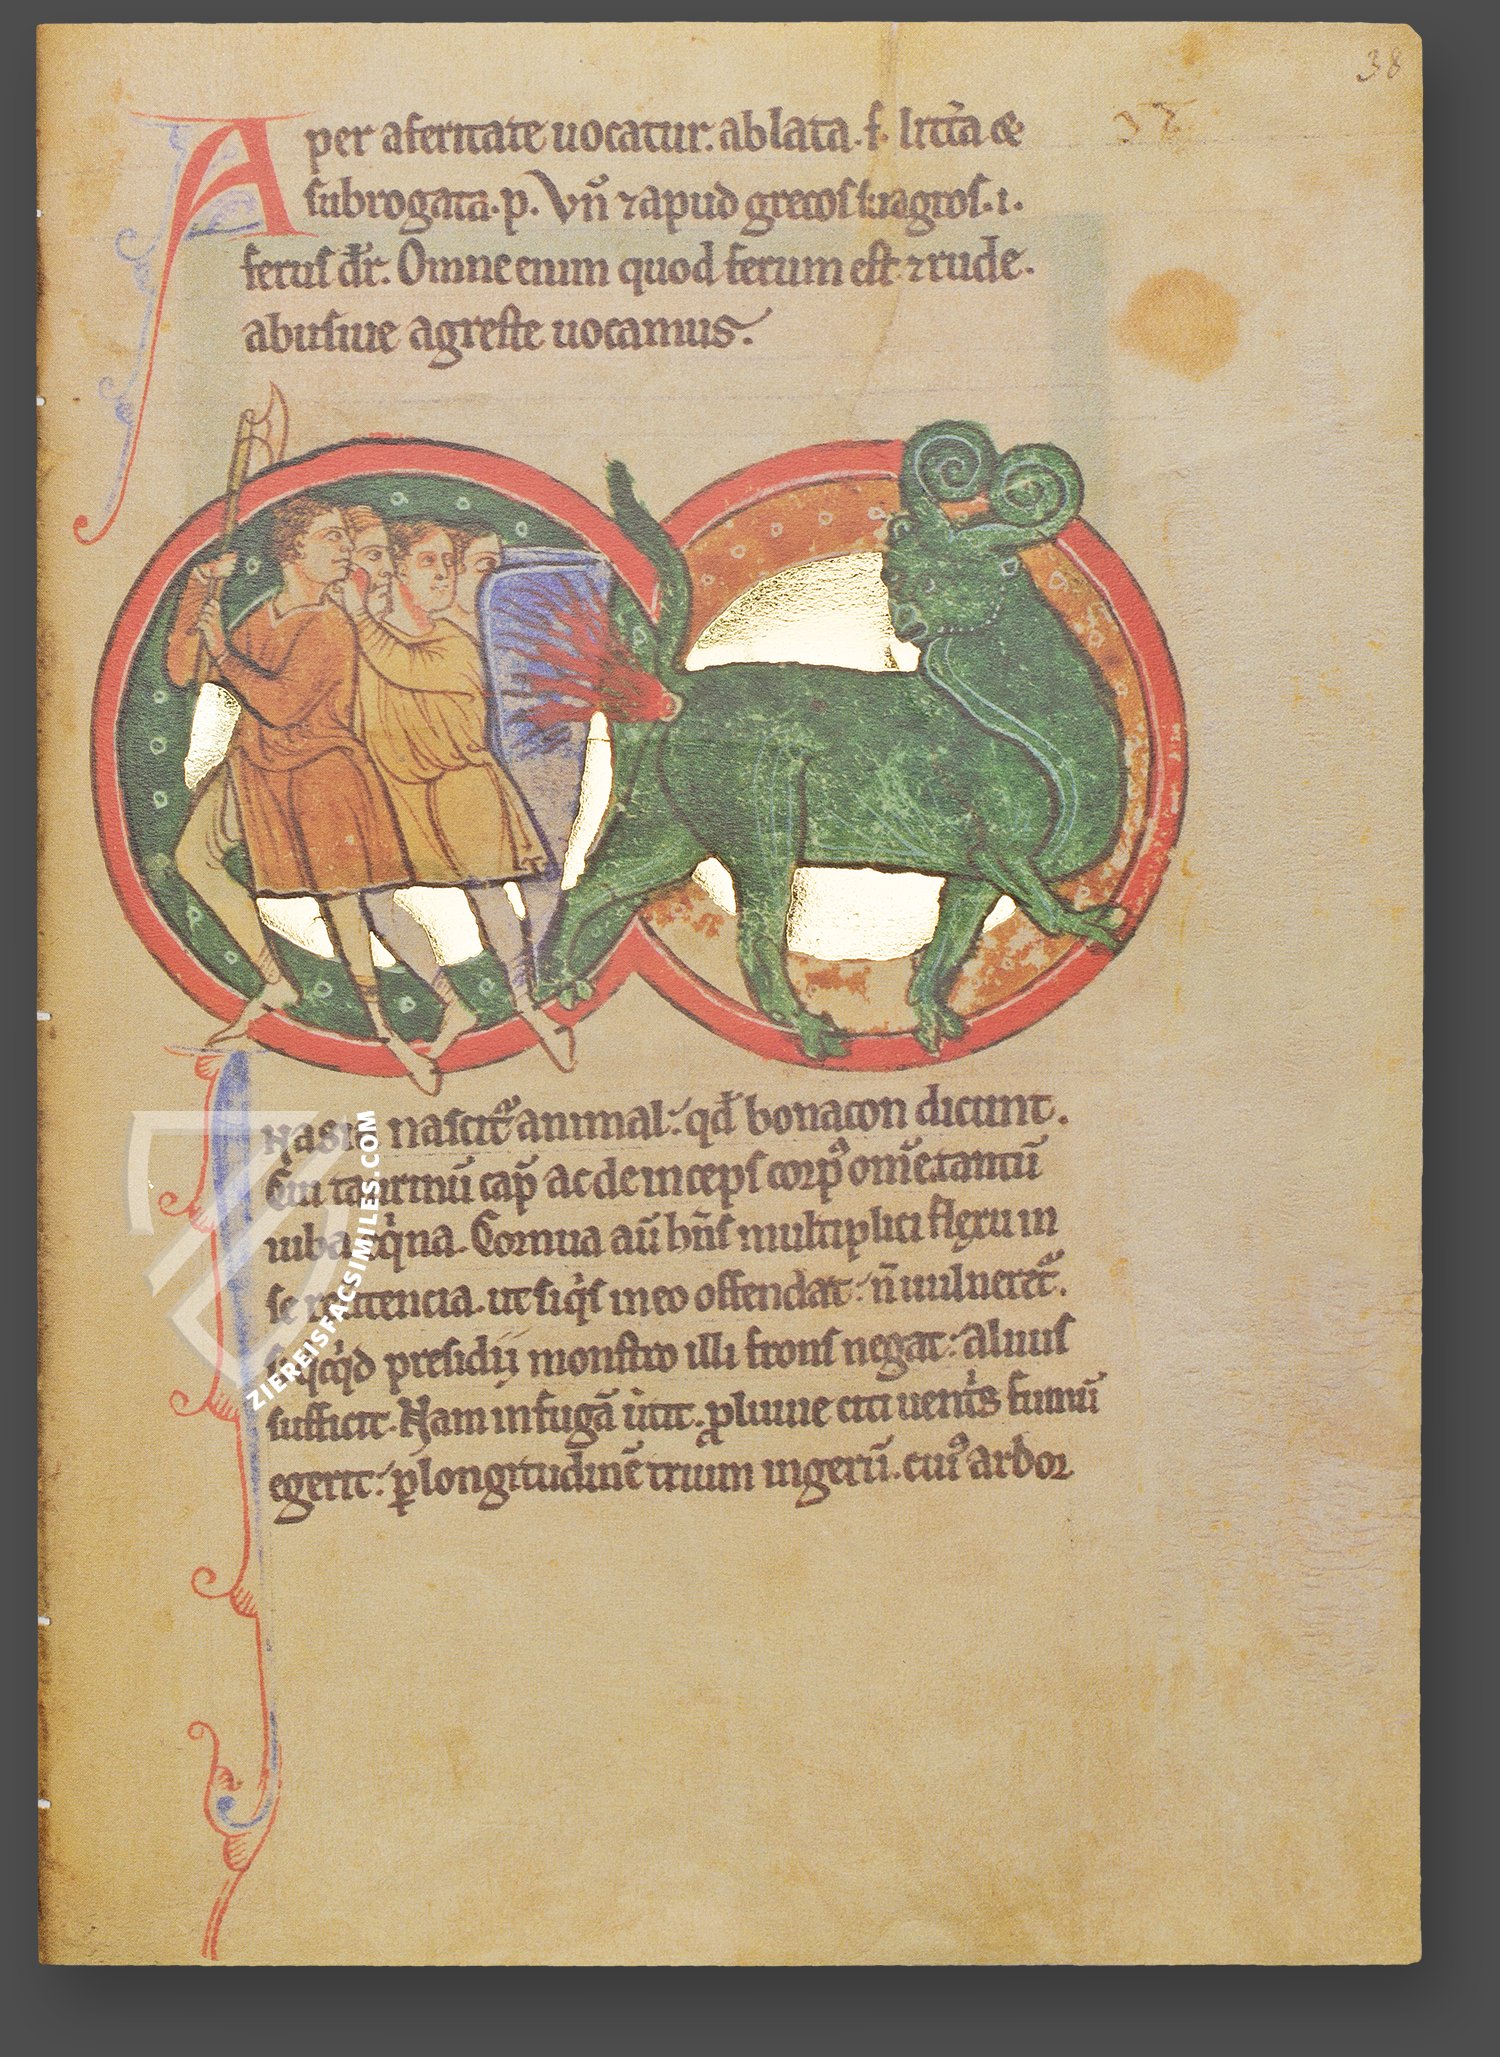 38
Aper aferitate uocatur. ablata .f. litt̃a &
subrogata .p. Vñ ⁊ apud grecos siragros .i.
ferus dr̃. Omne enim quod ferum est ⁊ rude.
abusiue agreste uocamus.
IN asia nascit᷑ animal: qd̃ bonacon dicunt.
Cui taurinũ cap̃ ac deinceps corpꝰ om̃e. tantũ
iuba eq̇na. Cornua aũ hñs multiplici flexu in
se re tencia. ut siq̇s in eo offendat: ñ uulneret᷑.
q̇cq̇d presidij monstro illi frons negat: aluus
sufficit. Nam in fugã u̇tit. ꝓluuie citi uent̃s fumũ
egerit: ꝑ longitudinẽ trium ingerũ. cuiꝰ ardor
ZIEREISFACSIMILES.COM